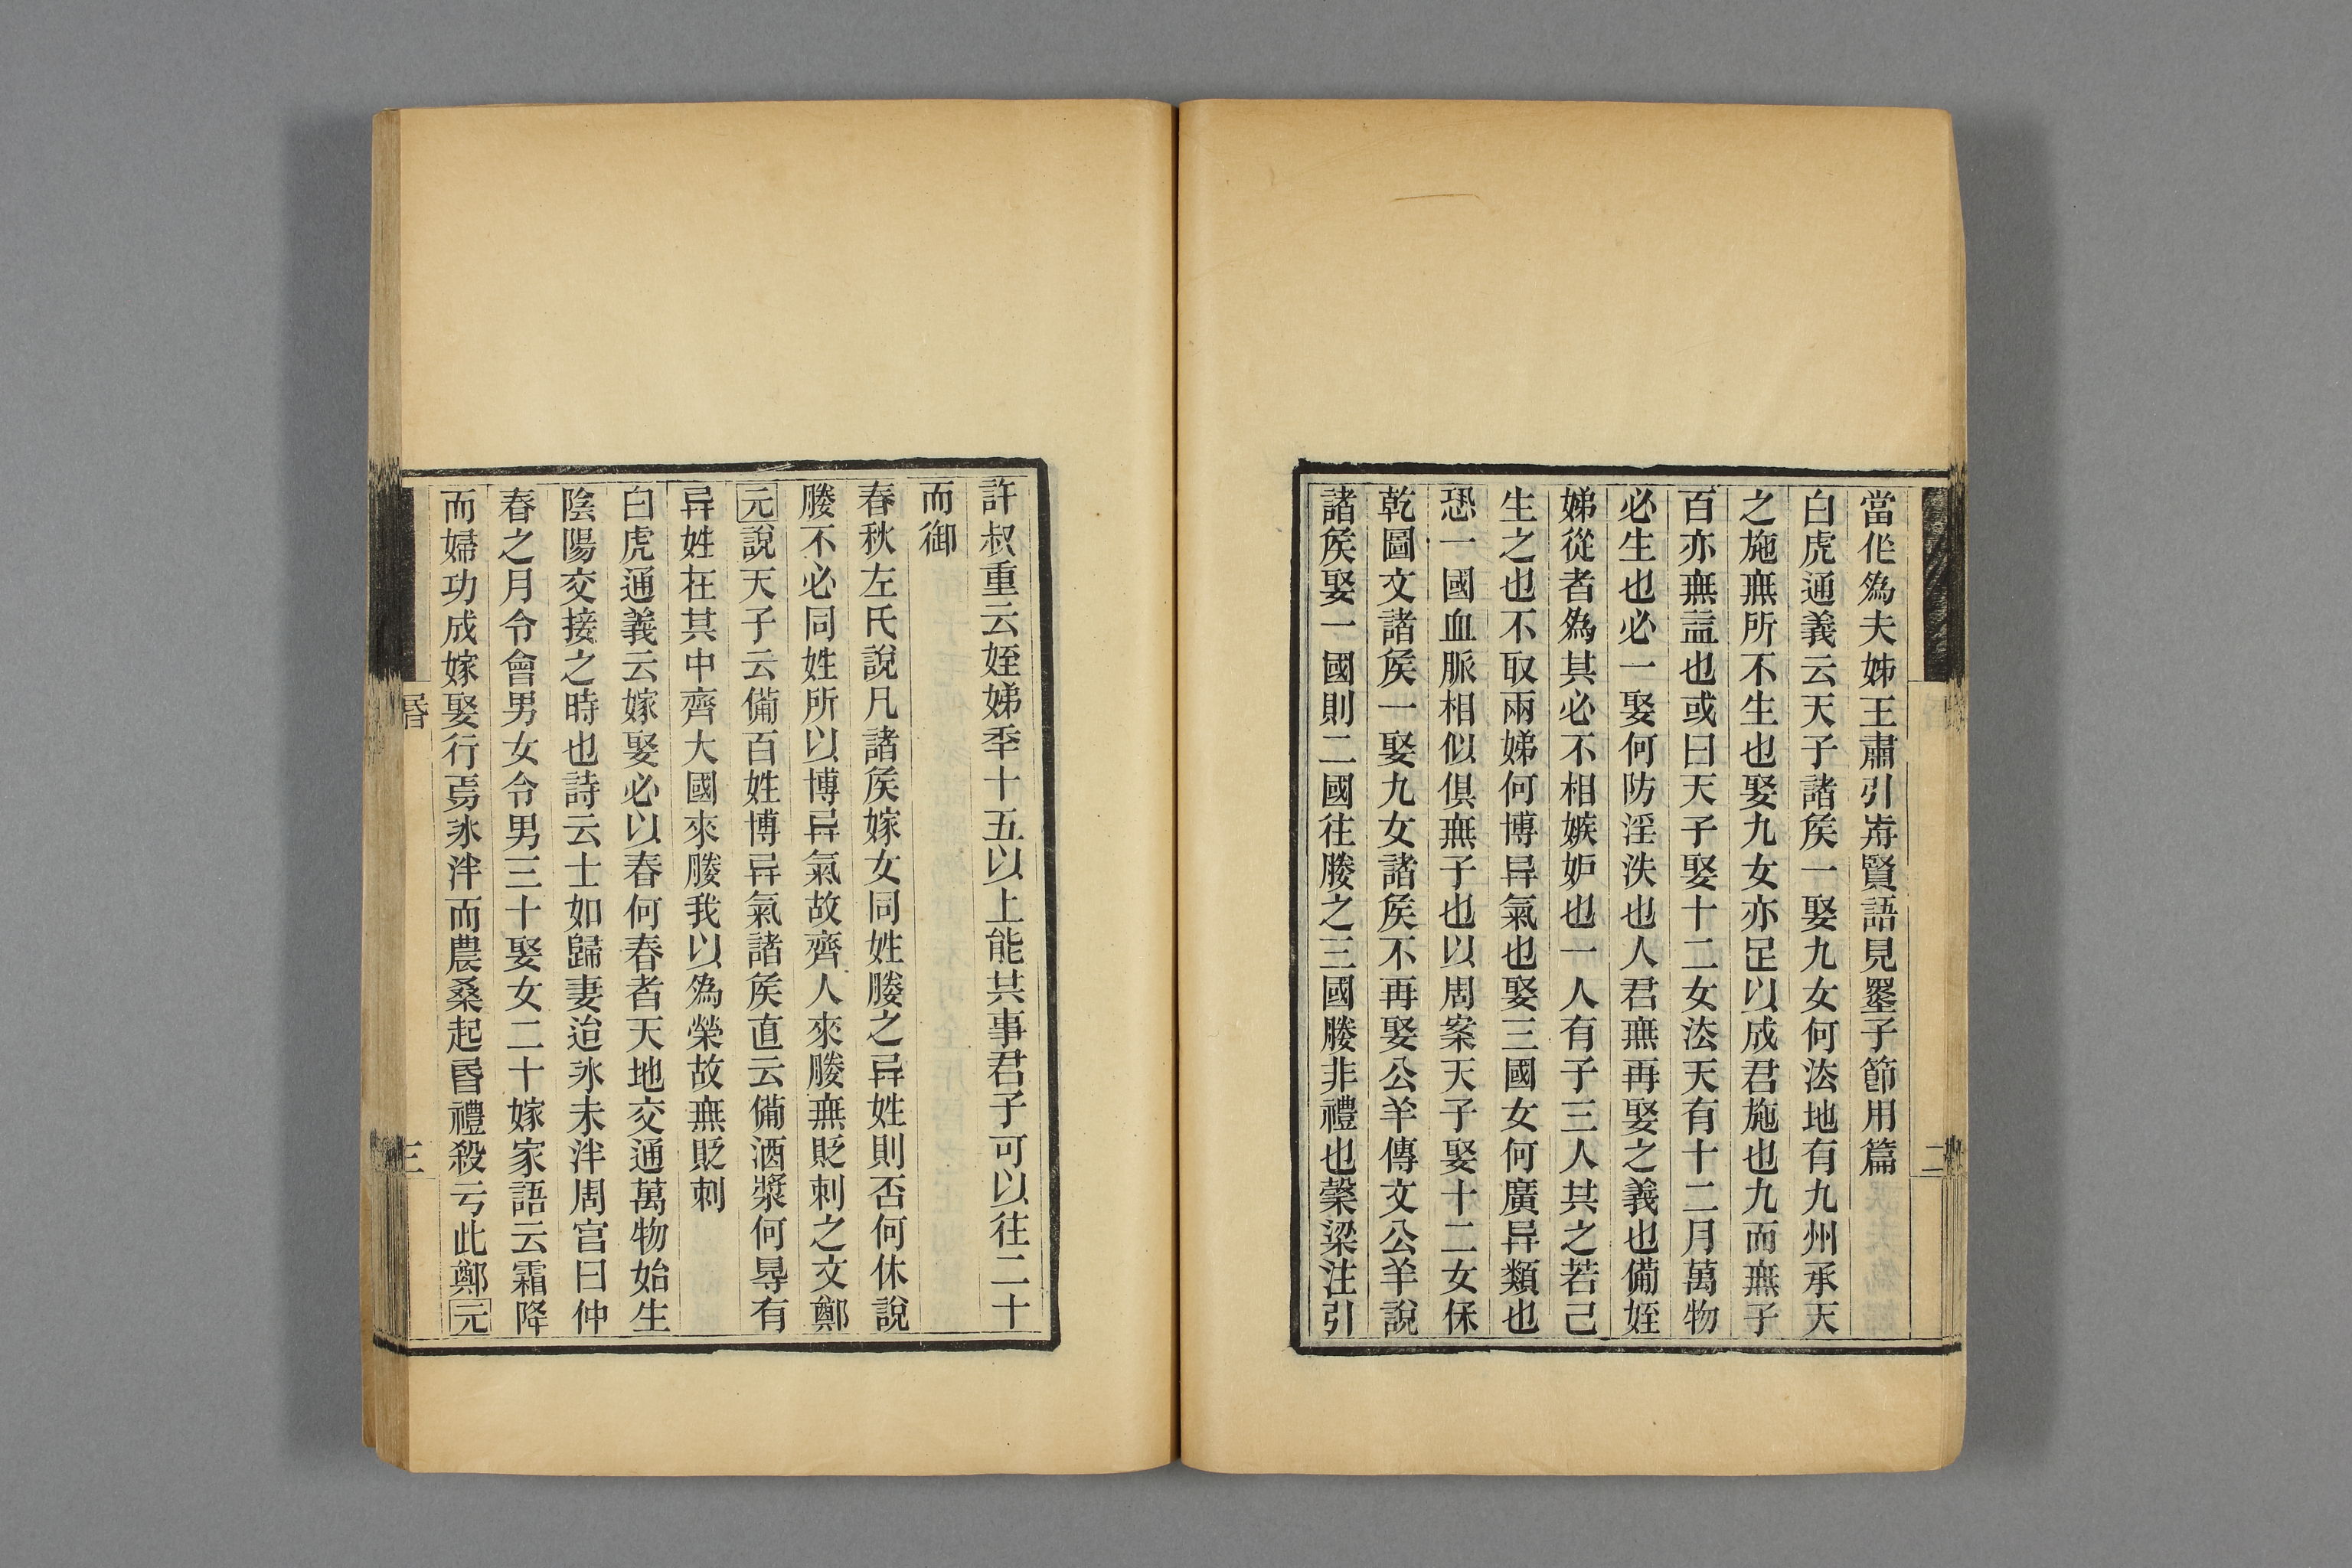 當作爲夫姊王肅引前賢語見墨子節用篇
白虎通義云天子諸矦一娶九女何法地有九州承天
之施無所不生也娶九女亦足以成君施也九而無子
百亦無益也或曰天子娶十二女法天有十二月萬物
必生也必一娶何防淫泆也人君無再娶之義也備姪
娣從者爲其必不相嫉妒也一人有子三人共之若己
生之也不取兩娣何博异氣也娶三國女何廣异類也
恐一國血脈相似俱無子也以周案天子娶十二女保
乾圖文諸矦一娶九女諸矦不再娶公羊傳文公羊說
諸矦娶一國則二國往媵之三國媵非禮也榖梁注引
二
許叔重云姪娣秊十五以上能共事君子可以往二十
而御
春秋左氏說凡諸矦嫁女同姓媵之异姓則否何休說
媵不必同姓所以博异氣故齊人來媵無貶刺之文鄭
元說天子云備百姓博异氣諸矦直云備酒漿何㝵有
异姓在其中齊大國來媵我以爲榮故無貶刺
白虎通義云嫁娶必以春何春者天地交通萬物始生
陰陽交接之時也詩云士如歸妻迨冰未泮周官曰仲
春之月令會男女令男三十娶女二十嫁家語云霜降
而婦功成嫁娶行焉冰泮而農桑起昬禮殺亏此鄭元
昬
三